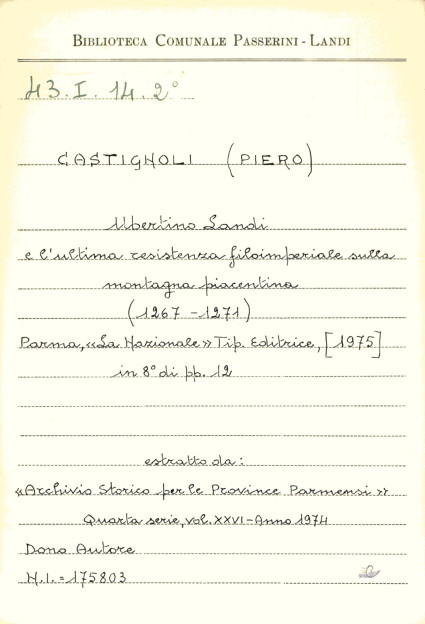 BIBLIOTECA COMUNALE PASSERINI - LANDI
43. I. 14. 2°
CASTIGNOLI (PIERO)
Ubertino Landi
e l'ultima resistenza filoimperiale sulla
montagna piacentina
(1267 - 1271)
Parma, «La Nazionale» Tip. Editrice, [1975]
in 8° di pp. 12
estratto da:
«Archivio Storico per le Province Parmensi»
Quarta serie, vol. XXVI - Anno 1974
Dono Autore
N.I. = 175803